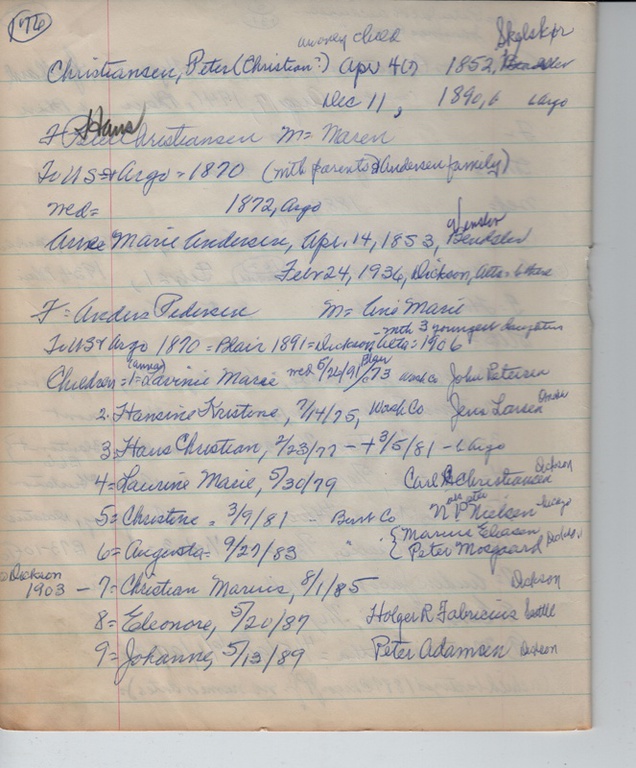 176
an only child Skelskør
Christiansen, Peter (Christian?) Apr 4(?) 1852,
Dec 11, 1890, b Argo
Hans
F Christiansen M= Maren
To US + Argo - 1870 (with parents & Andersen family)
med= 1872, Argo
Ane Marie Andersen, Apr. 14, 1853,
Febr 24, 1936, Dickson, Alta
F= Anders Pedersen M= Ane Marie
with 3 youngest daughters
To US + Argo 1870 = Blair 1891 = Dickson Alta = 1906
Children = 1= (Anna) Lavinie Marie med 5/24/91 Blair /73 Wash Co John Petersen
2. Hansine Kristone, 7/14/75, Wash Co Jens Larsen Omaha
3. Hans Christian, 2/23/77 - + 3/5/81 - b Argo
4= Laurine Marie, 5/30/79 Carl Christiansen Dickson
5= Christine = 3/9/81 - Burt Co N P Nielsen Chicago
6= Augusta = 9/27/83 " { Marius Eliasen
Peter Mosgaard Dickson
Dickson
1903 - 7= Christian Marius, 8/1/85 Dickson
8= Eleonore, 5/20/87 Holger R Fabricius Seattle
9= Johanne, 5/13/89 Peter Adamsen Dickson